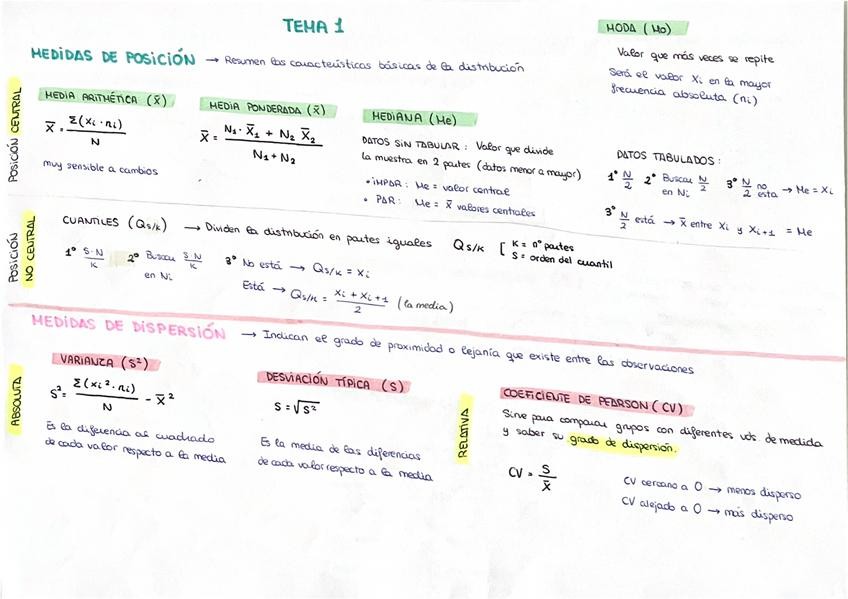 TEMA 1
MEDIDAS DE POSICIÓN → Resumen las características básicas de la distribución
MODA (Mo)
Valor que más veces se repite
Será el valor Xi en la mayor
frecuencia absoluta (ni)
POSICIÓN CENTRAL
MEDIA ARITMÉTICA (X̄)
X̄ = Σ(xi·ni) / N
muy sensible a cambios
MEDIA PONDERADA (X̄)
X̄ = N1·X̄1 + N2 X̄2 / N1 + N2
MEDIANA (Me)
DATOS SIN TABULAR: Valor que divide
la muestra en 2 partes (datos menor a mayor)
• IMPAR: Me = valor central
• PAR: Me = X̄ valores centrales
DATOS TABULADOS:
1º N/2 2º Buscar N/2 en Ni 3º N/2 no esta → Me = Xi
3º N/2 está → X̄ entre Xi y Xi+1 = Me
POSICIÓN
NO CENTRAL
CUANTILES (Qs/k) → Dividen la distribución en partes iguales Qs/k [ K = nº partes
S = orden del cuantil
1º S·N/K 2º Buscar S·N/K en Ni 3º No está → Qs/k = xi
Está → Qs/k = xi + xi+1 / 2 (la media)
MEDIDAS DE DISPERSIÓN → Indican el grado de proximidad o lejanía que existe entre las observaciones
ABSOLUTA
VARIANZA (S²)
S² = Σ(xi²·ni) / N − X̄²
Es la diferencia al cuadrado
de cada valor respecto a la media
DESVIACIÓN TÍPICA (S)
S = √S²
Es la media de las diferencias
de cada valor respecto a la media
RELATIVA
COEFICIENTE DE PEARSON (CV)
Sirve para comparar grupos con diferentes uds de medida
y saber su grado de dispersión.
CV = S / X̄
CV cercano a 0 → menos disperso
CV alejado a 0 → más disperso